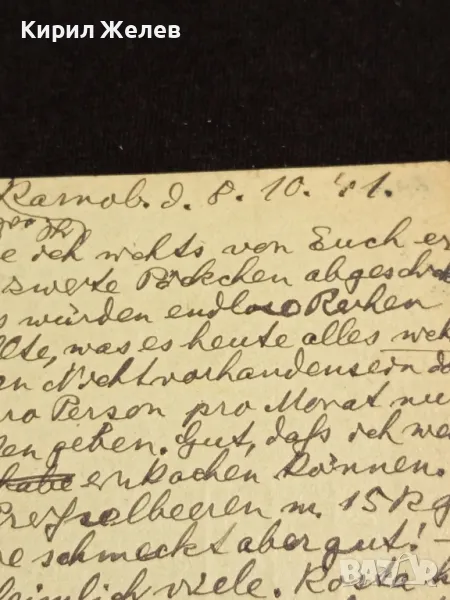 Кирил Желев
Karnob. d. 8. 10. 41.
e ich nichts von Euch er
zweite Päckchen abgeschick
s würden endlose Reihen
llte, was es heute alles
en Nichtvorhandensein da
ro Person pro Monat nu
den geben. Gut, daß ich we
habe einkochen können.
Preißelbeeren m. 15 kg
e schmeckt aber gut! -
heimlich viele.
BAZAR